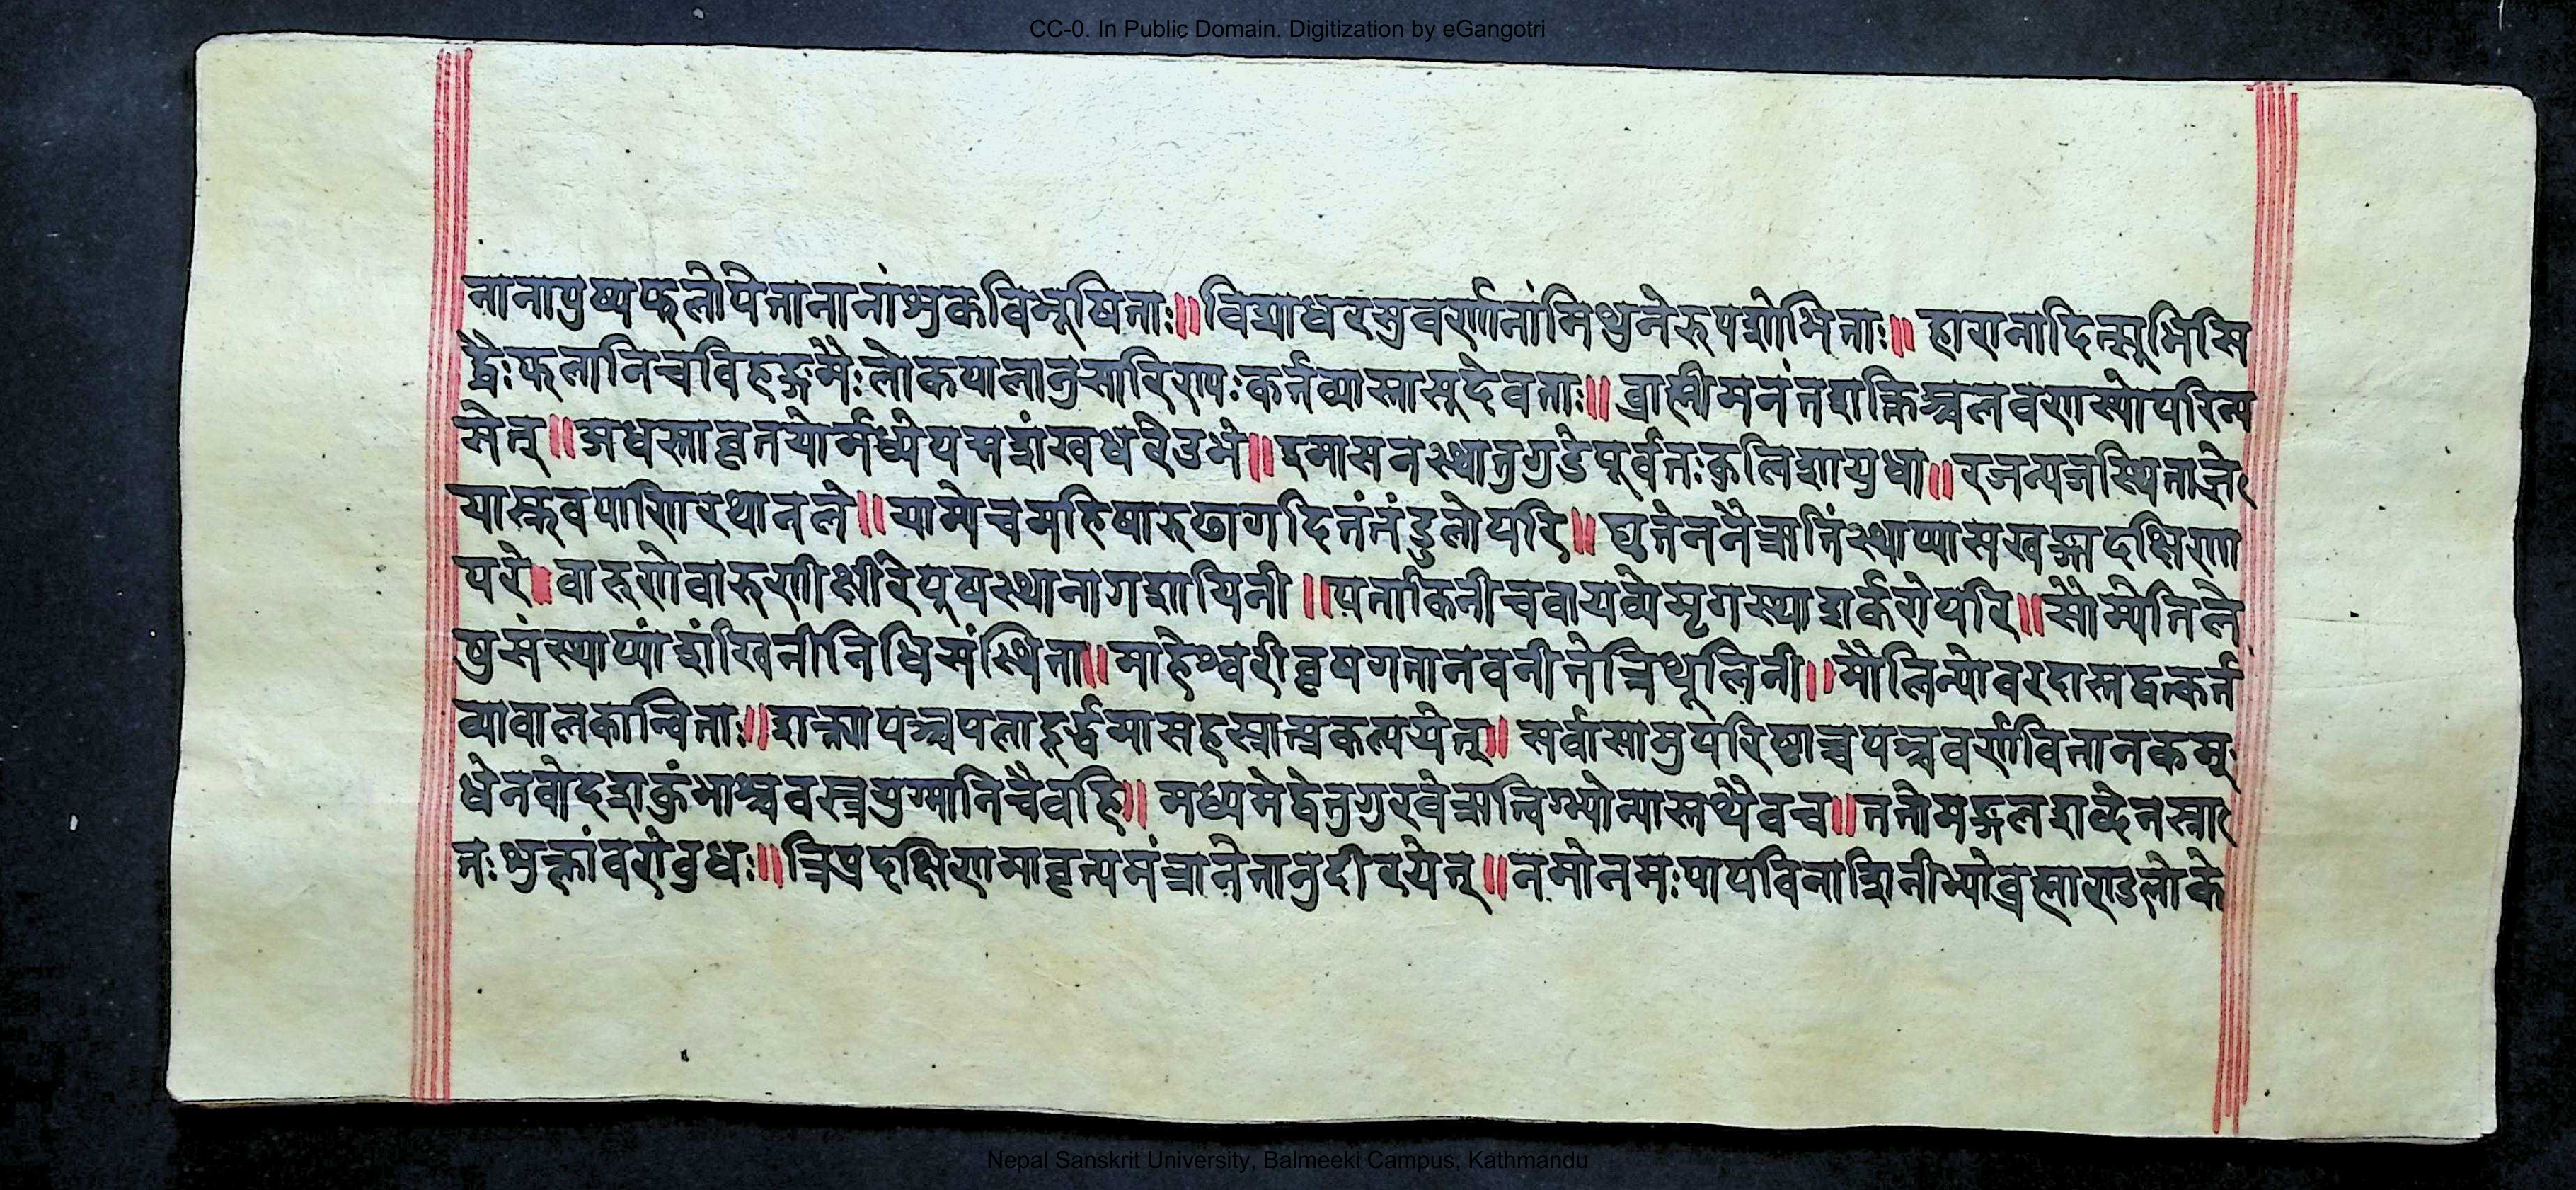 CC-0. In Public Domain. Digitization by eGangotri
नानापुष्पफलोपेतानानांशुकविभूषिताः॥ विद्याधरसुवर्णानांमिथुनैरुपशोभिताः॥ हारानादित्सुभिःसि
द्धैःफलानिचविहङ्गमैः लोकपालानुसारिण्यःकर्तव्यास्तासुदेवताः॥ ब्राह्मीमनंतशक्तिञ्चलवणस्योपरिन्य
सेत्॥ अधस्तावृतयोर्मध्येपद्मशंखधरेउभे॥ इभासनस्थातुगुडेपूर्वतःकुलिशायुधा॥ रजन्यजस्थिताग्ने
यास्रुवपाणिरथानले॥ याम्येचमहिषारुढागदितंतंडुलोपरि॥ घृतेतुनैरृतिंस्थाप्यासखङ्गादक्षिणा
परे॥ वारुणेवारुणीक्षीरेपुषस्थानागशायिनी॥ पताकिनीचवायव्येमृगस्थाशर्करोपरि॥ सौम्येतिले
षुसंस्थाप्यांशंखिनीनिधिसंस्थिता॥ माहेश्वरीवृषगतानवनीतेत्रिशूलिनी॥ मौलिन्योवरदास्तद्वत्कर्त
व्यावालकान्विताः॥ शक्त्यापञ्चपलादूर्द्ध्वमासहस्रात्प्रकल्पयेत्॥ सर्वासामुपरिष्ठाच्चपञ्चवर्णवितानकम्
धेनवोदशकुंभाश्चवस्त्रयुग्मानिचैवहि॥ मध्यमेद्वेतुगुरवेऋत्विग्भ्योन्यास्तथैवच॥ ततोमङ्गलशब्देनस्ना
तःशुक्लांवरोवुधः॥ त्रिप्रदक्षिणमावृत्यमंत्रानेतानुदीरयेत्॥ नमोनमःपापविनाशिनीभ्योब्रह्माण्डलोके
Nepal Sanskrit University, Balmeeki Campus, Kathmandu